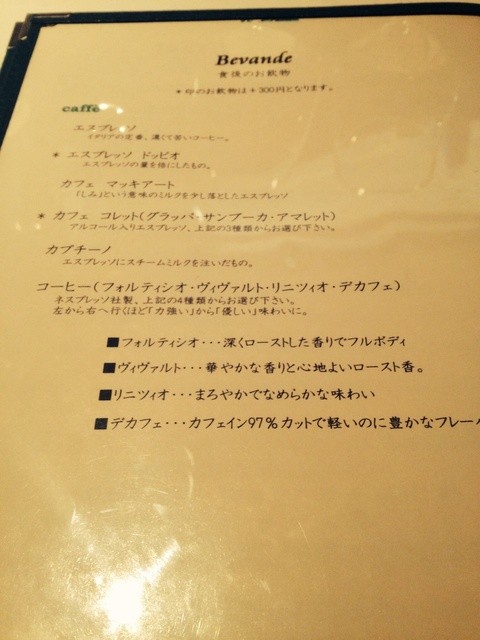 Bevande
食後のお飲物
*印のお飲物は+300円となります。
caffe
エスプレッソ
イタリアの定番、濃くて苦いコーヒー。
* エスプレッソ ドッピオ
エスプレッソの量を倍にしたもの。
カフェ マッキアート
「しみ」という意味のミルクを少し落としたエスプレッソ
* カフェ コレット(グラッパ・サンブーカ・アマレット)
アルコール入りエスプレッソ、上記の3種類からお選び下さい。
カプチーノ
エスプレッソにスチームミルクを注いだもの。
コーヒー(フォルティシオ・ヴィヴァルト・リニツィオ・デカフェ)
ネスプレッソ社製、上記の4種類からお選び下さい。
左から右へ行くほど「力強い」から「優しい」味わいに。
■フォルティシオ・・・深くローストした香りでフルボディ
■ヴィヴァルト・・・華やかな香りと心地よいロースト香。
■リニツィオ・・・まろやかでなめらかな味わい
■デカフェ・・・カフェイン97%カットで軽いのに豊かなフレー